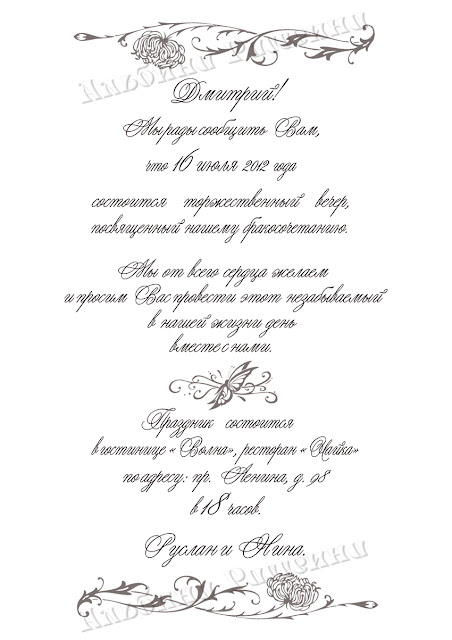 Дмитрий!
Мы рады сообщить Вам,
что 16 июля 2012 года
состоится торжественный вечер,
посвященный нашему бракосочетанию.
Мы от всего сердца желаем
и просим Вас провести этот незабываемый
в нашей жизни день
вместе с нами.
Праздник состоится
в гостинице « Волна», ресторан « Чайка»
по адресу: пр. Ленина, д. 98
в 18 часов.
Руслан и Нина.